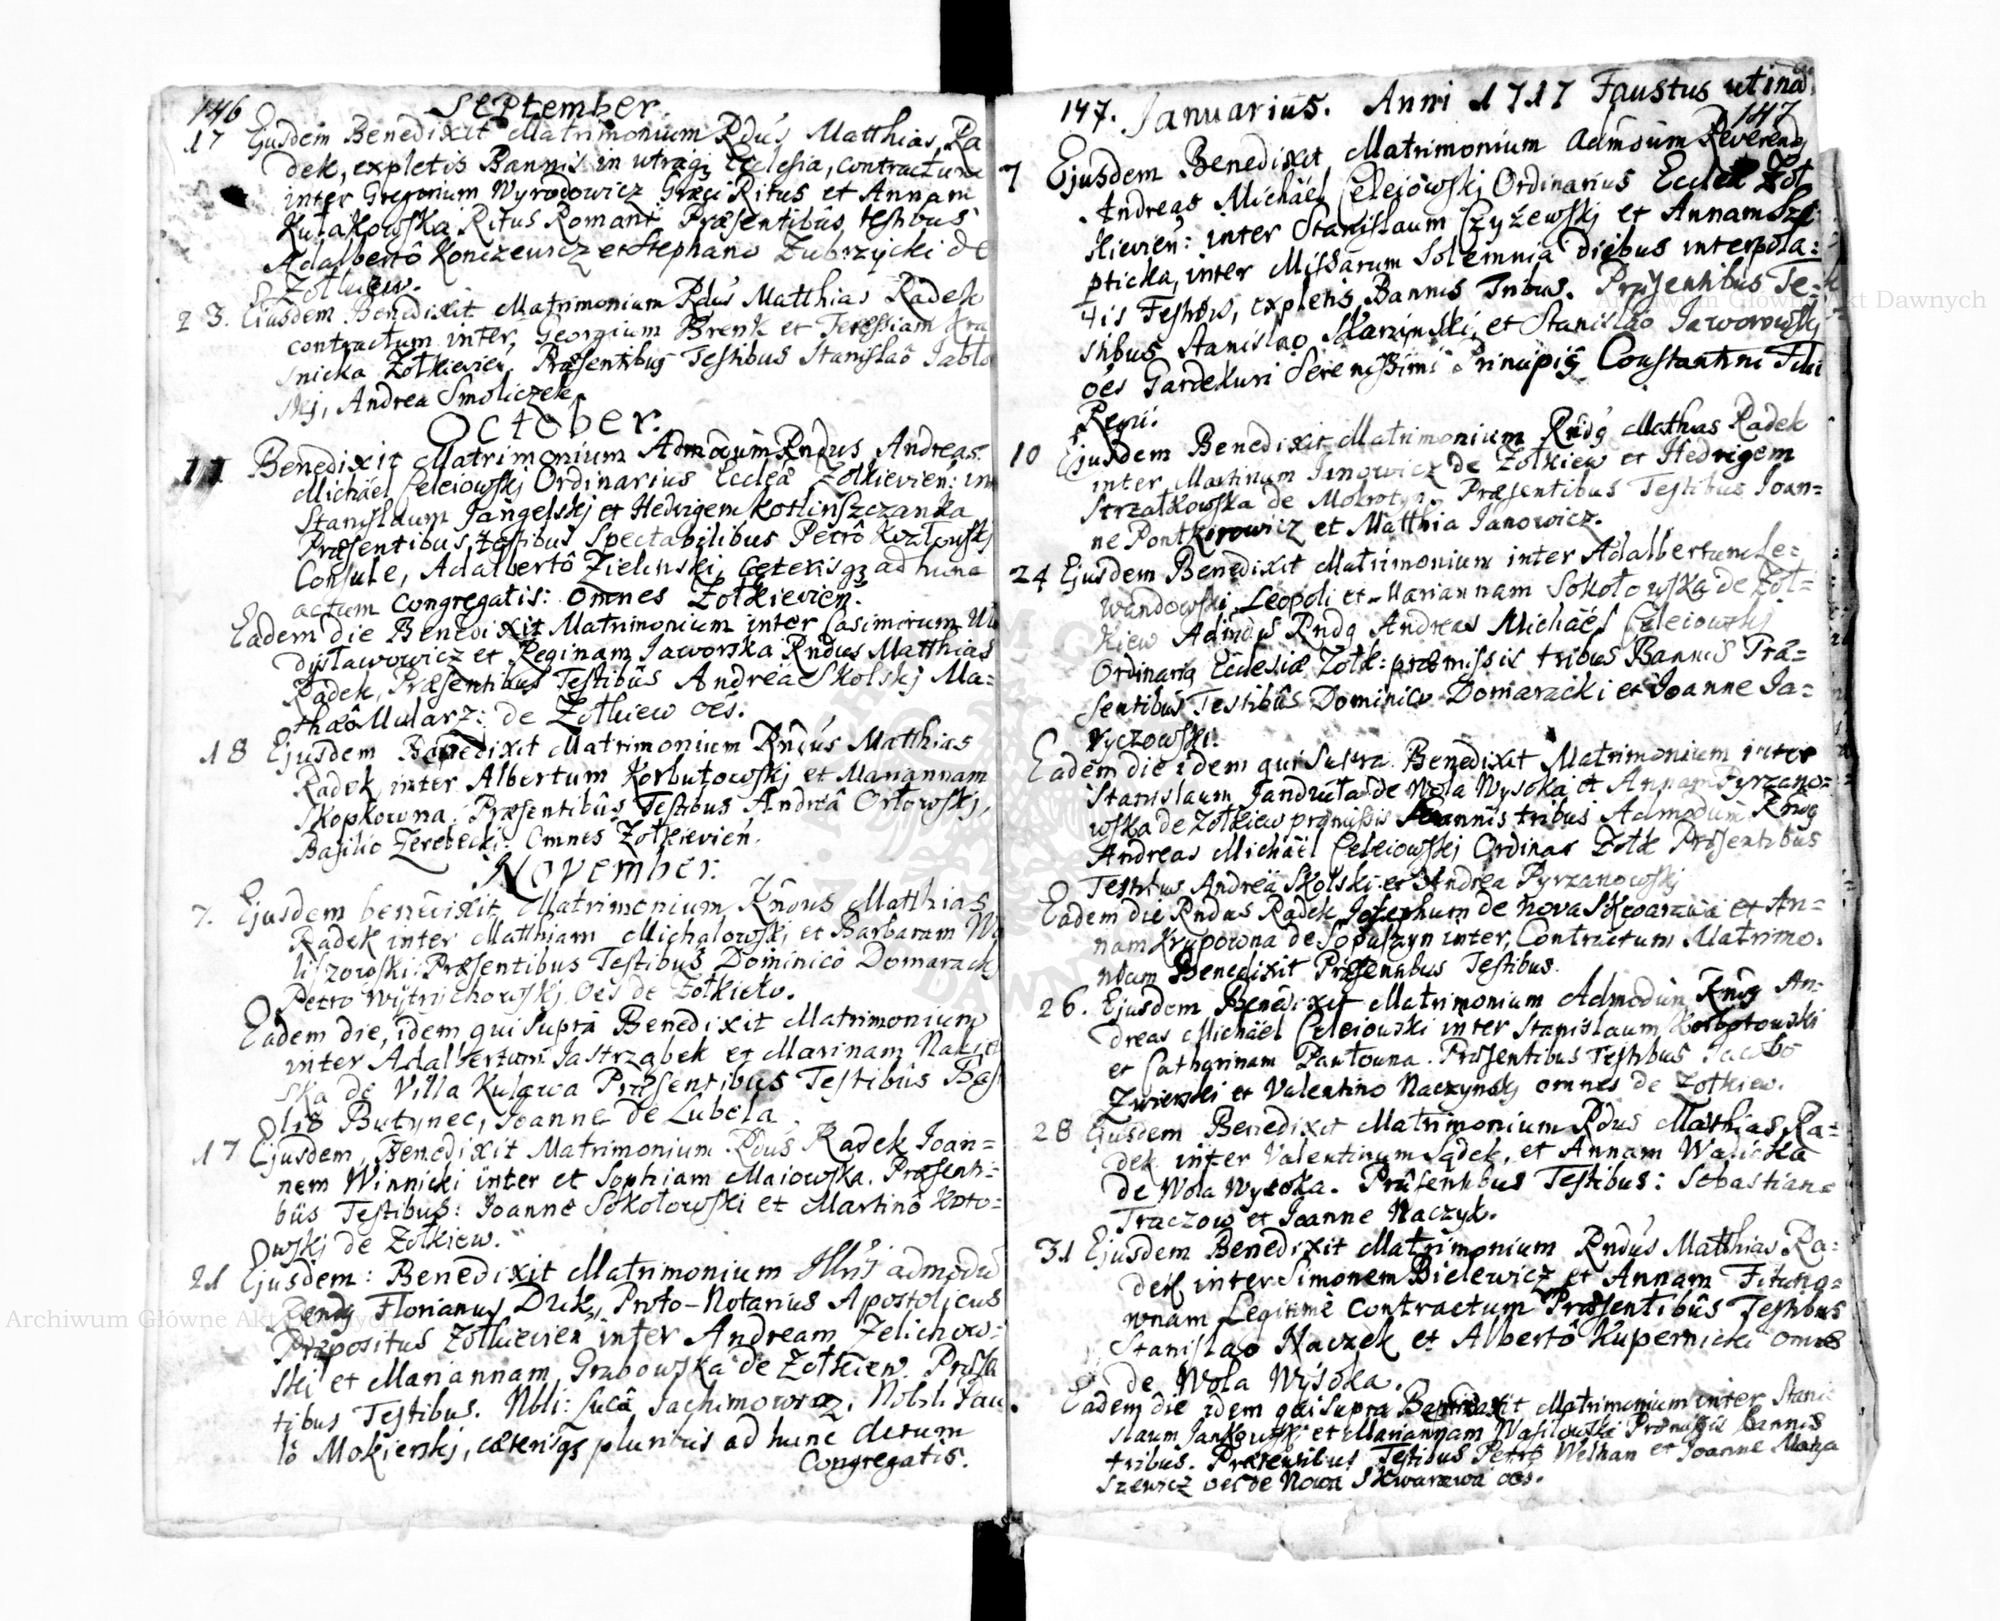 146
September.
17 Ejusdem Benedixit Matrimonium Rdus Matthias Ra
dek, expletis Bannis in utraq; Ecclesia, contractum
inter Gregorium Wyrodowicz Græci Ritus et Annam
Kułakowska Ritus Romani Præsentibus testibus
Adalbertô Konczewicz et Stephano Zubrzycki de
Zołkiew.
23. Eiusdem Benedixit Matrimonium Rdus Matthias Radek
contractum inter, Georgium Brenk et Teressiam Kra
snicka Zołkievien, Præsentibus Testibus Stanislaô Jabło
skj, Andrea Smoliczek.
October.
11 Benedixit Matrimonium Admodum Rndus Andreas
Michäel Celeiowskj Ordinarius Eccleæ Zołkievien: in
Stanislaum Jangelskj et Hedvigem Kotlinszczanka
Præsentibus testibus Spectabilibus Petrô Kozłowskj
Consule, Adalbertô Zielinski, Cæterisq; ad hunc
actum congregatis: omnes Zołkievien.
Eadem die Benedixit Matrimonium inter Casimirum Wła
dysławowicz et Reginam Jaworska Rndus Matthias
Radek, Præsentibus Testibus Andrea Skolskj Ma=
thæô Mularz: de Zołkiew oes.
18 Ejusdem Benedixit Matrimonium Rndus Matthias
Radek inter Albertum Korbutowskj et Mariannam
Skopkowna. Præsentibus Testibus Andreâ Orłowskj,
Basilio Zerebecki. Omnes Zołkievien.
November.
7. Ejusdem benedixit Matrimonium Rndus Matthias
Radek inter Matthiam Michalowskj et Barbaram Wo
liszowski: Præsentibus Testibus Dominicô Domarack
Petro Wytrichowskj oes de Zołkiew.
Eadem die, idem qui supra Benedixit Matrimonium
inter Adalbertum Jastrząbek et Marinam Nakie
ska de Villa Kulawa Præsentibus Testibus Basi
liô Butynec, Joanne de Lubela
17 Ejusdem, Benedixit Matrimonium Rdus Radek Joan=
nem Winnicki inter et Sophiam Maiowska. Præsenti=
bus Testibus: Joanne Sokołowski et Martinô Koto=
owskj de Zołkiew.
21 Ejusdem: Benedixit Matrimonium Illus admodu
Rendq Florianus Duk, Proto-Notarius Apostolicus
Præpositus Zołkievien inter Andream Zelichow=
ski et Mariannam Grabowska de Zołkiew. Præsen
tibus Testibus. Nbli: Lucâ Jachimowicz, Nobili Pau
lô Mokierskj, cæterisq; pluribus ad hunc actum
Congregatis.
147. Januarius. Anni 1717 Faustus utina
147
7 Ejusdem Benedixit Matrimonium Admoum Reverend
Andreas Michäel Celeiowskj Ordinarius Eccleæ Zoł
kievien: inter Stanislaum Czyżewskj et Annam Sze
pticka, inter Missarum Solemnia diebus interpola=
tis Festivis, expletis Bannis Tribus. Præsentibus Te=
stibus Stanislao Skarzinski, et Stanislao Jaworowskj
oes Gardekuri Serenissimi Principis Constantini Filii
Regii.
10 Ejusdem Benedixit Matrimonium Rndq Mathias Radek
inter Martinum Janowicz de Zołkiew et Hedvigem
Strzałkowska de Mokrotyn. Præsentibus Testibus Joan=
ne Pontkorowicz et Matthia Janowicz.
24 Ejusdem Benedixit Matrimonium inter Adalbertum Le=
wandowski Leopoli et Mariannam Sokołowska de Zoł=
kiew Admdus Rndq Andreas Michäel Celeiowskj
Ordinariq Ecclesiæ Zołk: præmissis tribus Bannis Præ=
sentibus Testibus Dominico Domaracki et Joanne Ja=
ryczowski.
Eadem die idem qui supra Benedixit Matrimonium inter
Stanislaum Jandruła de Wola Wysoka et Annam Pyrzano=
wska de Zołkiew præmissis Bannis tribus Admodum Rndq
Andreas Michäel Celeiowskj Ordinar Zołk Præsentibus
Testibus Andreä Skolski et Andrea Pyrzanowskj
Eadem die Rndus Radek Josephum de Nova Skwarzawa et An=
nam Krupowna de Sopuszyn inter, Contractum Matrimo.
nium Benedixit Præsentibus Testibus.
26. Ejusdem Benedixit Matrimonium Admodum Rndq An-
dreas Michäel Celeiouski inter Stanislaum Korbotouski
et Catharinam Pawłouna. Præsentibus Testibus Jacobo
Zwierski et Valentino Naczynskj omnes de Zołkiew.
28 Ejusdem Benedixit Matrimonium Rdus Mathias Ra=
dek inter Valentinum Sądek, et Annam Walicka
de Wola Wysoka. Præsentibus Testibus: Sebastiane
Traczow et Joanne Naczyk.
31 Ejusdem Benedixit Matrimonium Rndus Matthias Ra=
dek inter Simonem Bielewicz et Annam Fitung=
wnam Legitime contractum Præsentibus Testibus
Stanislao Naczek et Albertô Kupernicki omnes
de Wola Wysoka.
Eadem die idem qui supra Benedixit Matrimonium inter Stani
slaum Jankowski et Mariannam Wasilowska Præmissis bannis
tribus. Præsentibus Testibus Petrô Welhan et Joanne Mata
szewicz oes de Nowa Skwarzawa oes.
Archiwum Główne Akt Dawnych
Archiwum Główne Akt Dawnych